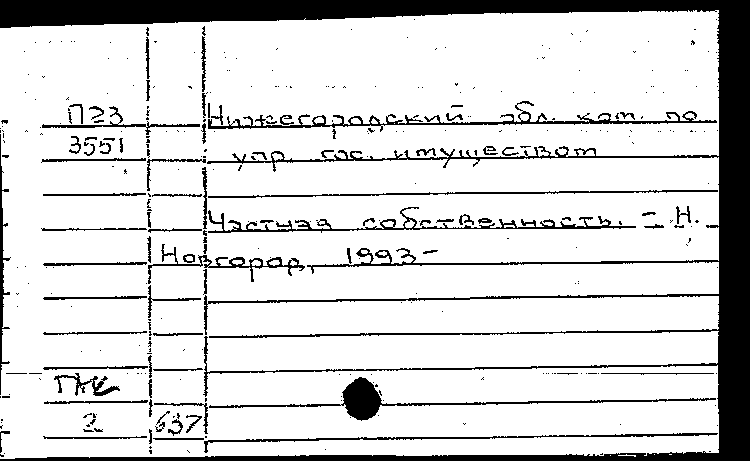 П23 Нижегородский обл. ком. по
3551 упр. гос. имуществом
Частная собственность. - Н.
Новгород, 1993-
2 637